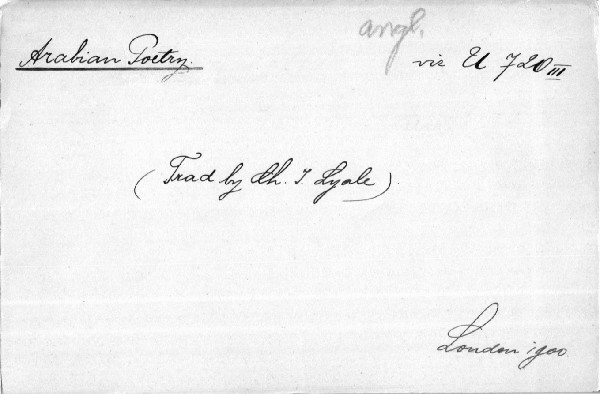 angl.
Arabian Poetry. vic U 720 III
(Trad by Ch. I Lyale).
London 1900.